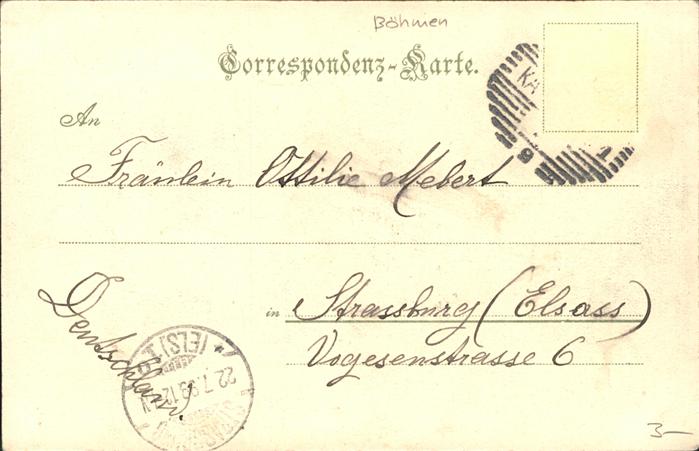 Böhmen
Correspondenz-Karte.
An
Fräulein Ottilie Mebert
in Strassburg (Elsass)
Vogesenstrasse 6
Deutschland.
(ELS) 1
22.7.99.12
3-